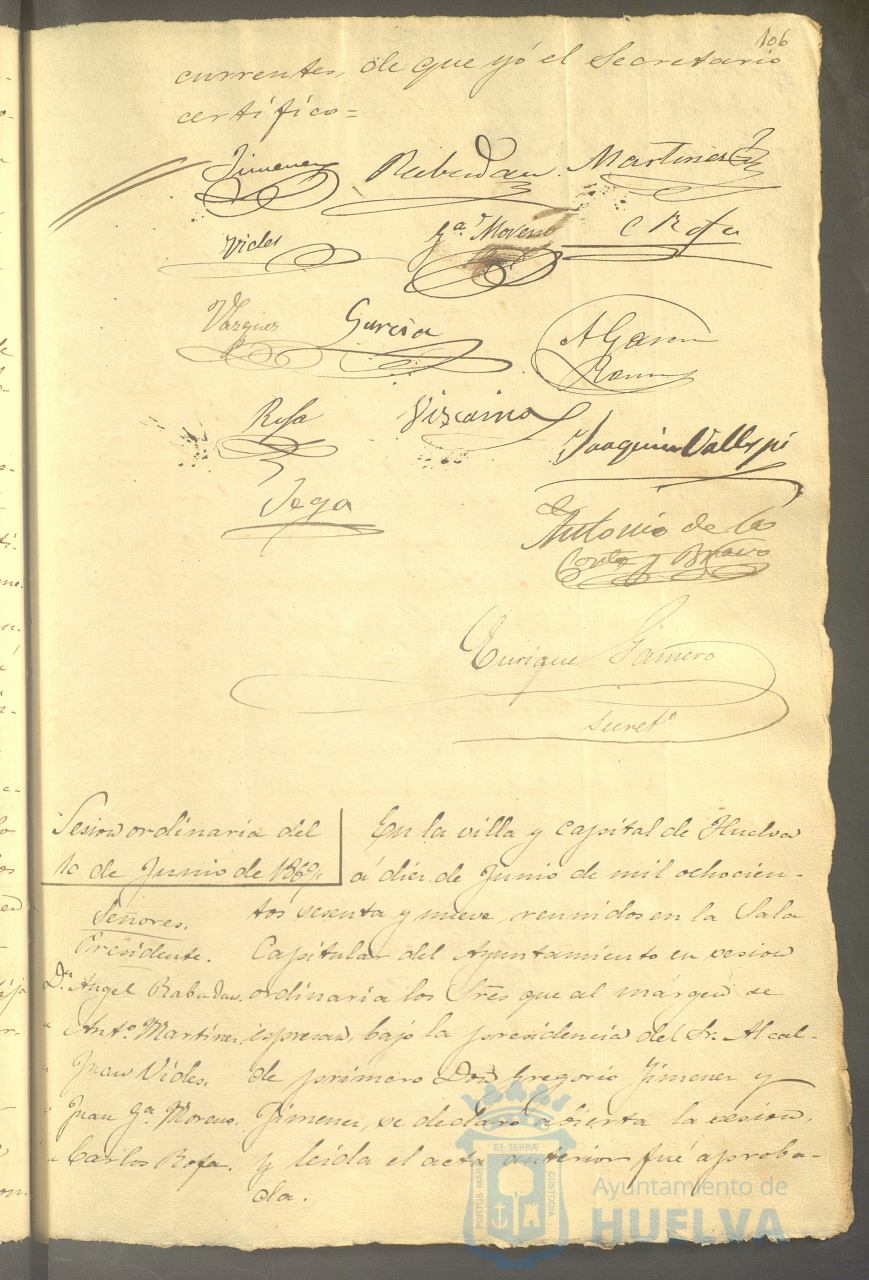 106
currentes, de que yó el Secretario
certifico=
Jimenez Rabadan Martinez
Vides Ga. Moreno C Rofa
Vazquez Garcia A Garcia
Ramos
Rofa Vizcaino Joaquin Vallespi
Vega
Antonio de la
Corte y Bravo
Enrique Gamero
Secreto.
Sesion ordinaria del
10 de Junio de 1869,,
Señores.
Presidente.
Dn. Angel Rabadan.
" Anto. Martinez
" Juan Vides.
" Juan Ga. Moreno.
" Carlos Rofa.
En la villa y capital de Huelva
á diez de Junio de mil ochocien-
tos sesenta y nueve, reunidos en la Sala
Capitular del Ayuntamiento en sesion
ordinaria los Sres que al márgen se
espresan, bajo la presidencia del Sr. Alcal-
de primero Don Gregorio Jimenez y
Jimenez, se declaró abierta la sesion,
y leida el acta anterior fué aproba-
da.
ET TERRÆ
PORTUS MARIS
CUSTODIA
Ayuntamiento de
HUELVA